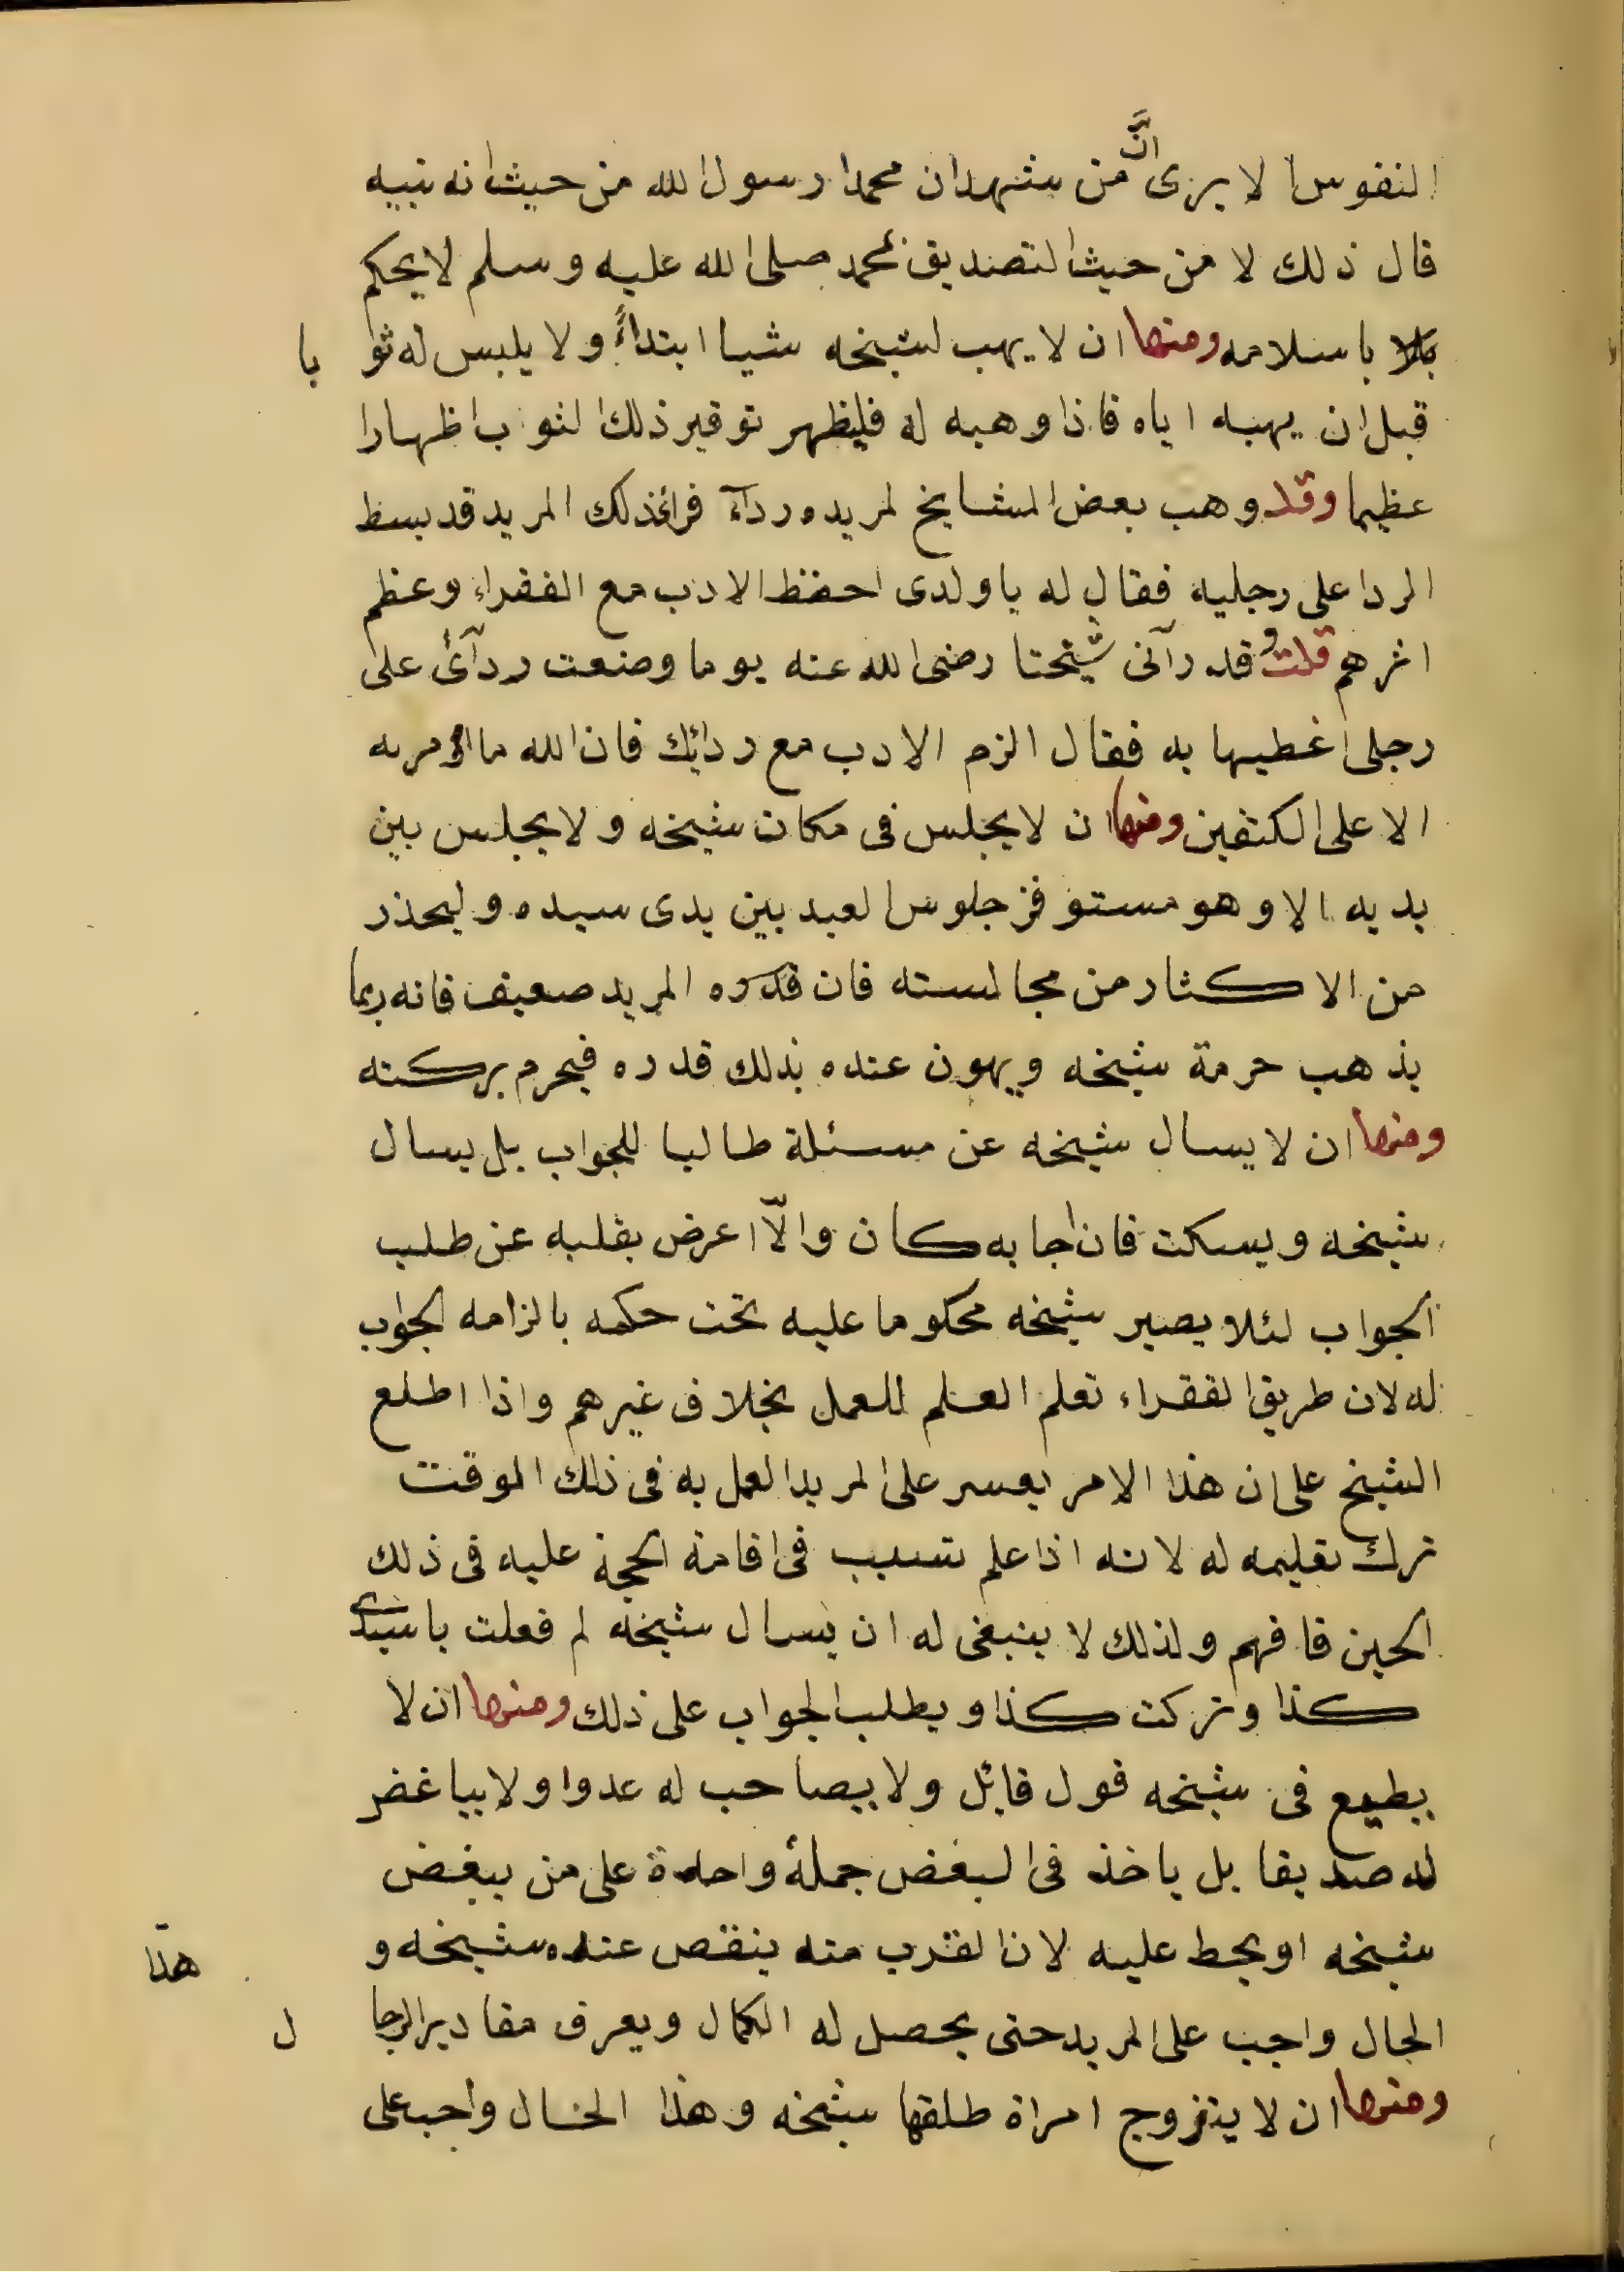 النفوس الا يرى انَّ من شهد ان محمدا رسول الله من حيث انه نبيه
قال ذلك لا من حيث التصديق بمحمد صلى الله عليه وسلم لا يحكم
باسلامه ومنها ان لا يهب لشيخه شيا ابتداءً ولا يلبس له ثوبا
قبل ان يهبه اياه فاذا وهبه له فليظهر توقير ذلك الثوب اظهارا
عظيما وقد وهب بعض المشايخ لمريده ردآء فرائ ذلك المريد قد بسط
الردا على رجليه فقال له يا ولدى احفظ الادب مع الفقراء وعظم
اثرهم قلت وقد رآنى شيخنا رضى الله عنه يوما وضعت ردآئ على
رجلى اغطيها به فقال الزم الادب مع ردائك فان الله ما امر به
الا على الكتفين ومنها ان لا يجلس فى مكان شيخه ولا يجلس بين
يديه الا وهو مستوفز جلوس العبد بين يدى سيده وليحذر
من الاكثار من مجالسته فان قدره المريد ضعيف فانه ربما
يذهب حرمة شيخه ويهون عنده بذلك قدره فيحرم بركته
ومنها ان لا يسال شيخه عن مسئلة طالبا للجواب بل يسال
شيخه ويسكت فان اجابه كان والّا اعرض بقلبه عن طلب
الجواب لئلا يصير شيخه محكوما عليه تحت حكمه بالزامه الجواب
له لان طريق الفقراء تعلم العلم للعمل بخلاف غيرهم واذا اطلع
الشيخ على ان هذا الامر يعسر على المريد العمل به فى ذلك الوقت
ترك تعليمه له لانه اذا علم تسبب فى اقامة الحجة عليه فى ذلك
الحين فافهم ولذلك لا ينبغى له ان يسال شيخه لم فعلت يا سيدى
كذا وتركت كذا ويطلب الجواب على ذلك ومنها ان لا
يطيع فى شيخه قول قائل ولا يصاحب له عدوا ولا يباغض
له صديقا بل ياخذ فى البغض جملة واحدة على من يبغض
شيخه او يحط عليه لان القرب منه ينقص عنده شيخه وهذا
الحال واجب على المريد حتى يحصل له الكمال ويعرف مقادير الرجال
ومنها ان لا يتزوج امراة طلقها شيخه وهذا الحال واجب على